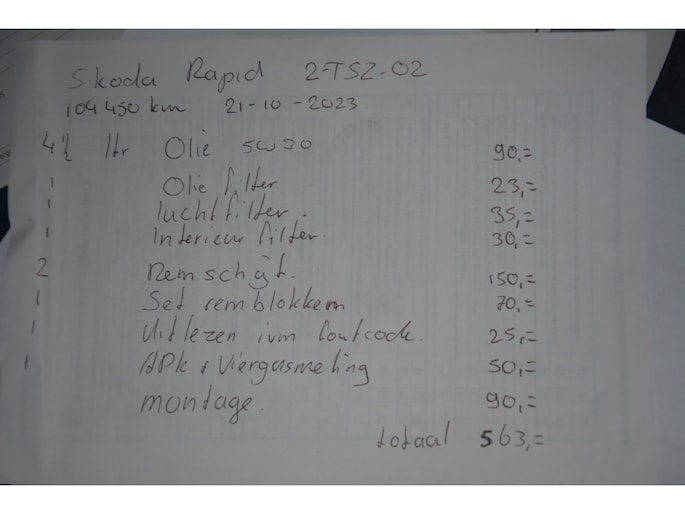 Skoda Rapid 2-TSZ-02
104450 km 21-10-2023.
4½ ltr Olie 5W30 90,=
1 Olie filter 23,=
1 luchtfilter. 35,=
1 Interieur filter 30,=
2 Remschijf. 150,=
1 Set remblokken 70,=
1 Uitlezen ivm foutcode. 25,=
1 APK + Viergasmeting 50,=
montage. 90,=
totaal 563,=